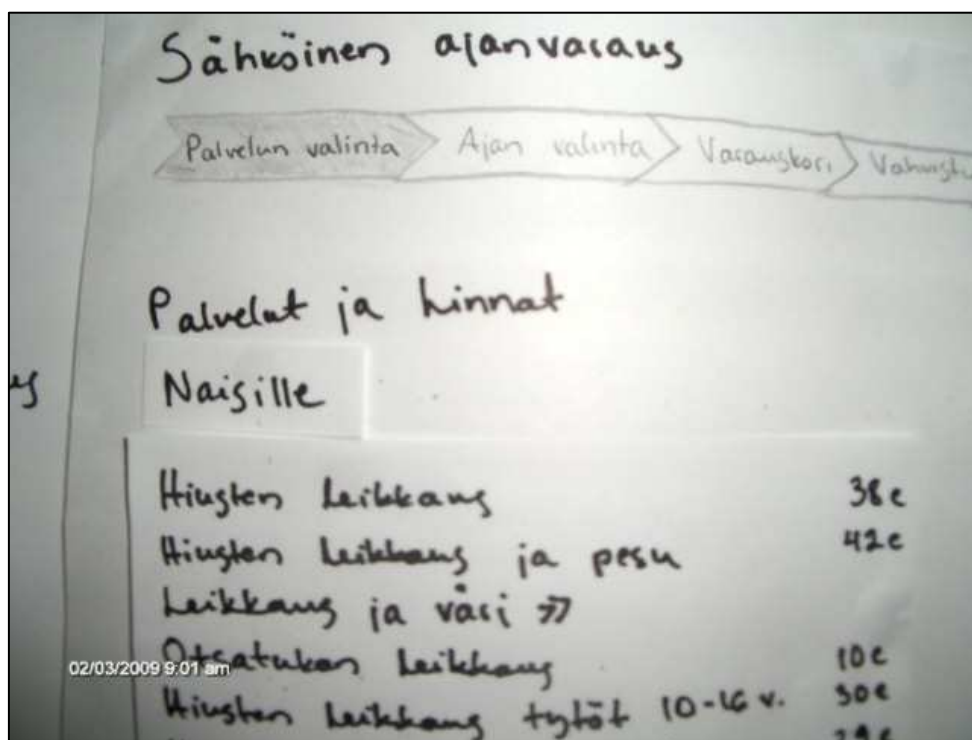 Sähköinen ajanvaraus
Palvelun valinta Ajan valinta Varauskori
Palvelut ja hinnat
Naisille
Hiusten leikkaus 38e
Hiusten leikkaus ja pesu 42e
Leikkaus ja väri >>
Otsatukan leikkaus 10e
02/03/2009 9:01 am
Hiusten leikkaus tytöt 10-16 v. 30e